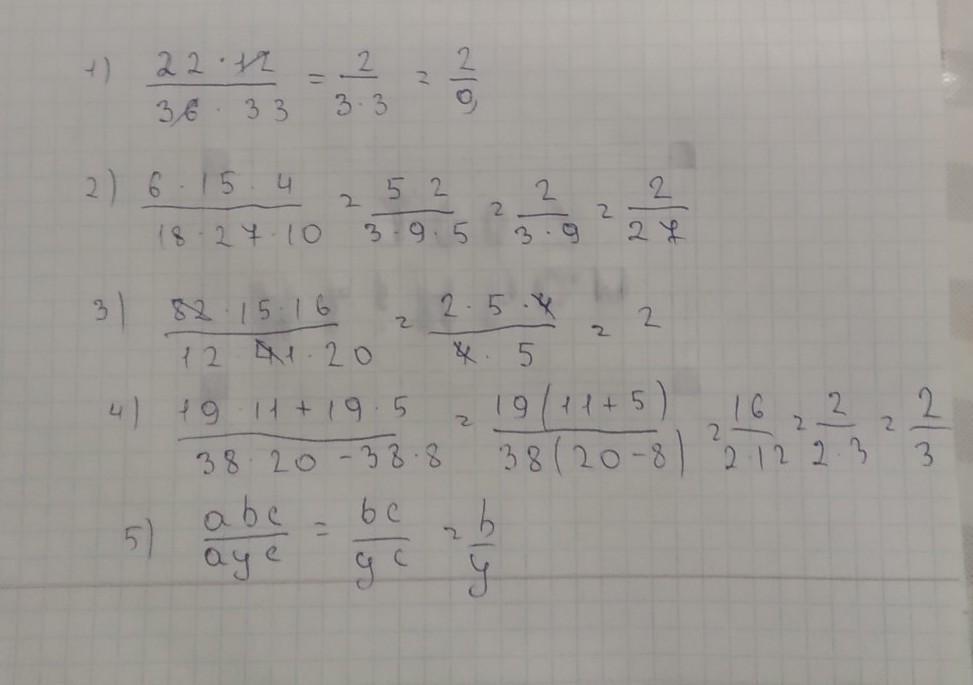 1) 22·12/36·33 = 2/3·3 = 2/9
2) 6·15·4/18·27·10 = 5 2/3·9·5 = 2/3·9 = 2/27
3) 82·15·16/12·41·20 = 2·5·4/4·5 = 2
4) 19·11+19·5/38·20-38·8 = 19(11+5)/38(20-8) = 16/2·12 = 2/2·3 = 2/3
5) abc/ayc = bc/yc = b/y